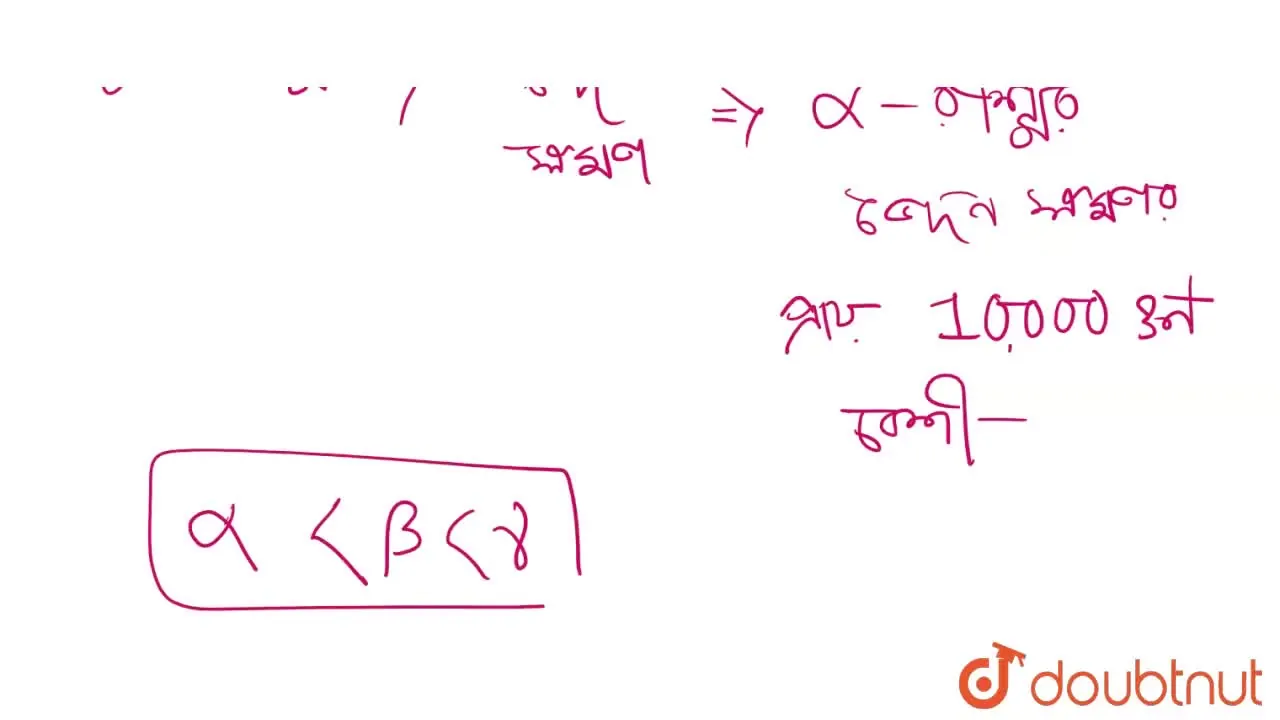 ক্ষমতা
⇒ α - রশ্মির
ভেদন ক্ষমতার
প্রায় 10,000 গুন
বেশী -
α < β < γ
doubtnut